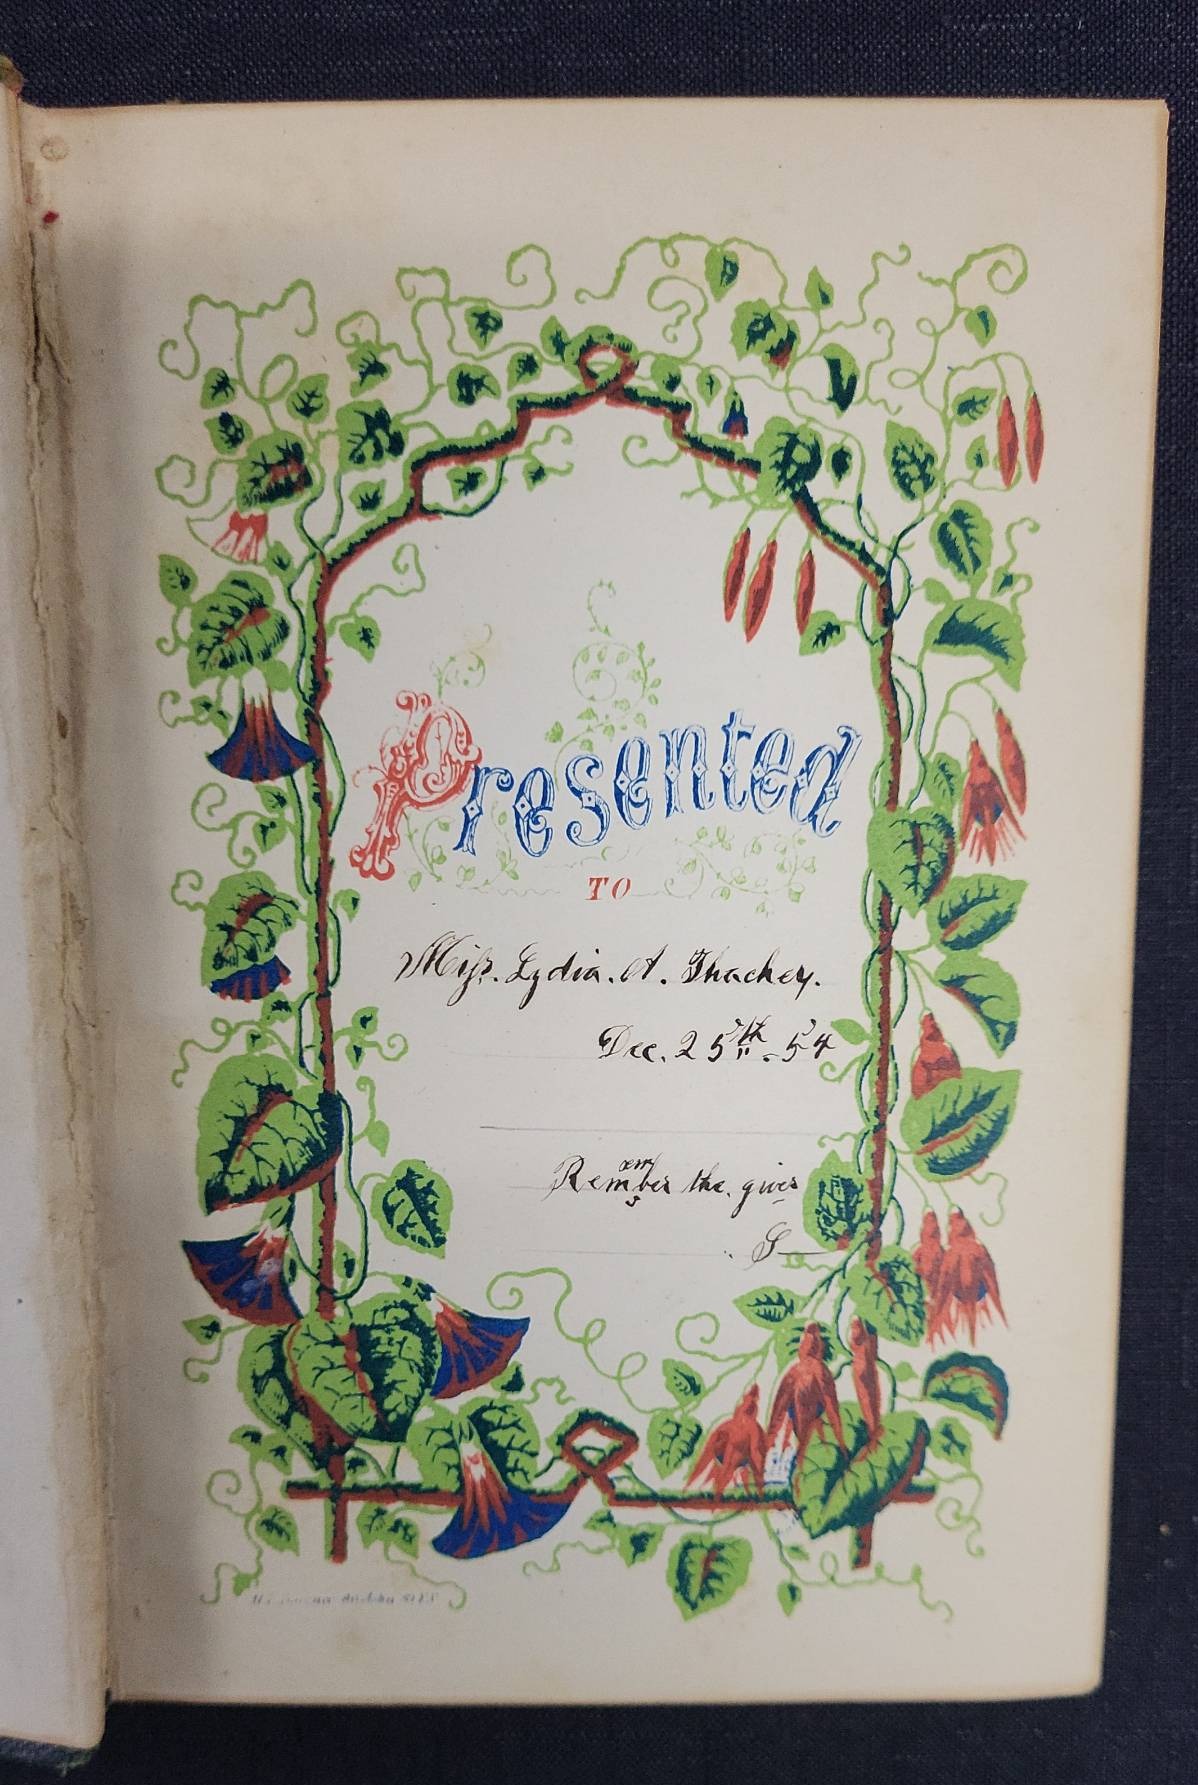 Presented
TO
Miss. Lydia. A. Thachey.
Dec. 25th - 54
Remember the giver
S